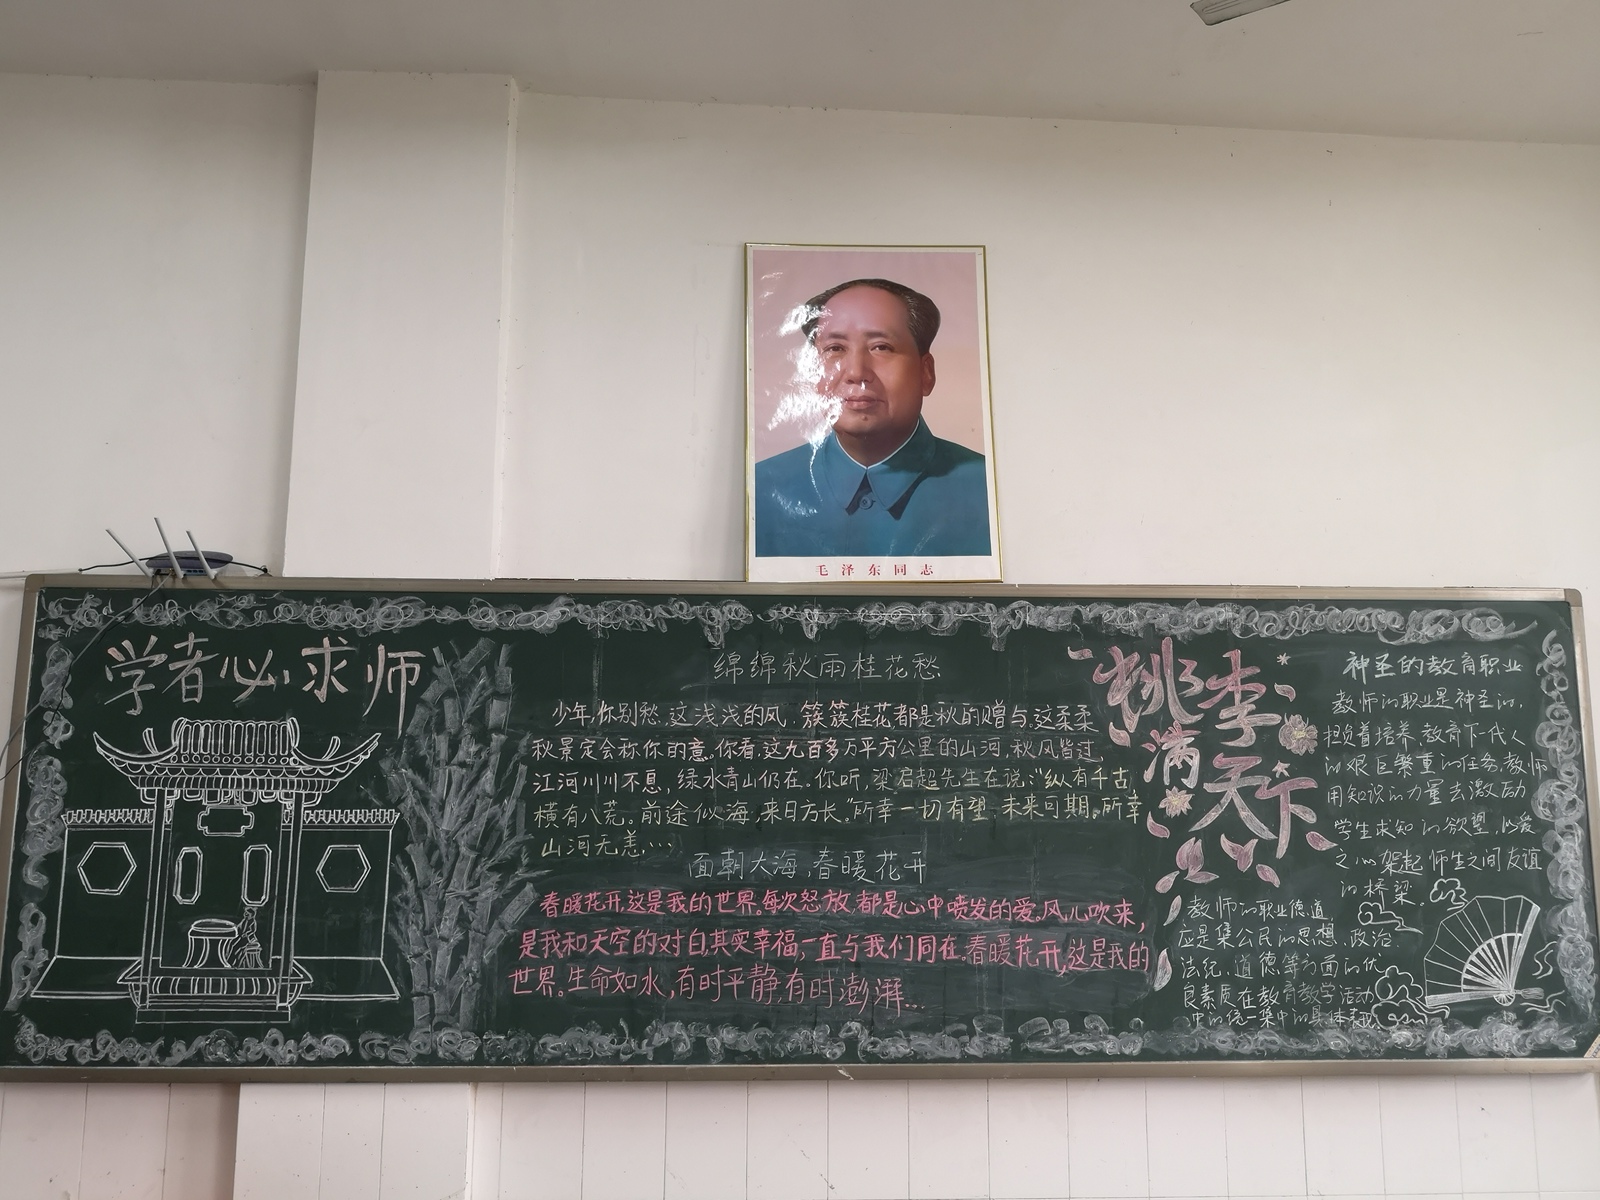 毛泽东同志
学者必求师
绵绵秋雨桂花愁
少年,你别愁,这浅浅的风,簇簇桂花都是秋的赠与,这柔柔
秋景定会称你的意。你看,这九百多万平方公里的山河,秋风皆过,
江河川川不息,绿水青山仍在。你听,梁启超先生在说:“纵有千古,
横有八荒。前途似海,来日方长。”所幸一切有望,未来可期。所幸
山河无恙...
面朝大海,春暖花开
春暖花开,这是我的世界。每次怒放,都是心中喷发的爱。风儿吹来,
是我和天空的对白,其实幸福,一直与我们同在。春暖花开,这是我的
世界。生命如水,有时平静,有时澎湃...
桃李
满
天下
神圣的教育职业
教师的职业是神圣的,
担负着培养、教育下一代人
的艰巨繁重的任务,教师
用知识的力量去激励
学生求知的欲望,以爱
之心架起师生之间友谊
的桥梁。
教师的职业德道,
应是集公民的思想、政治、
法纪、道德等方面的优
良素质在教育教学活动
中的统一集中的具体表现